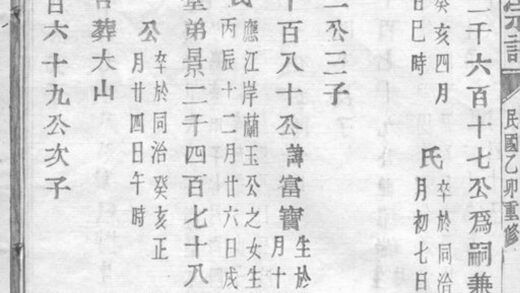 民國乙卯重修
千六百十七公爲嗣兼
癸亥四月
日巳時
氏
卒於同治
月初七日
公三子
百八十公諱富寶
生於
月十
應江岸蘭玉公之女生
丙辰十二月廿六日戌
弟景二千四百七十八
公
卒於同治癸亥正
月廿四日午時
葬大山
百六十九公次子